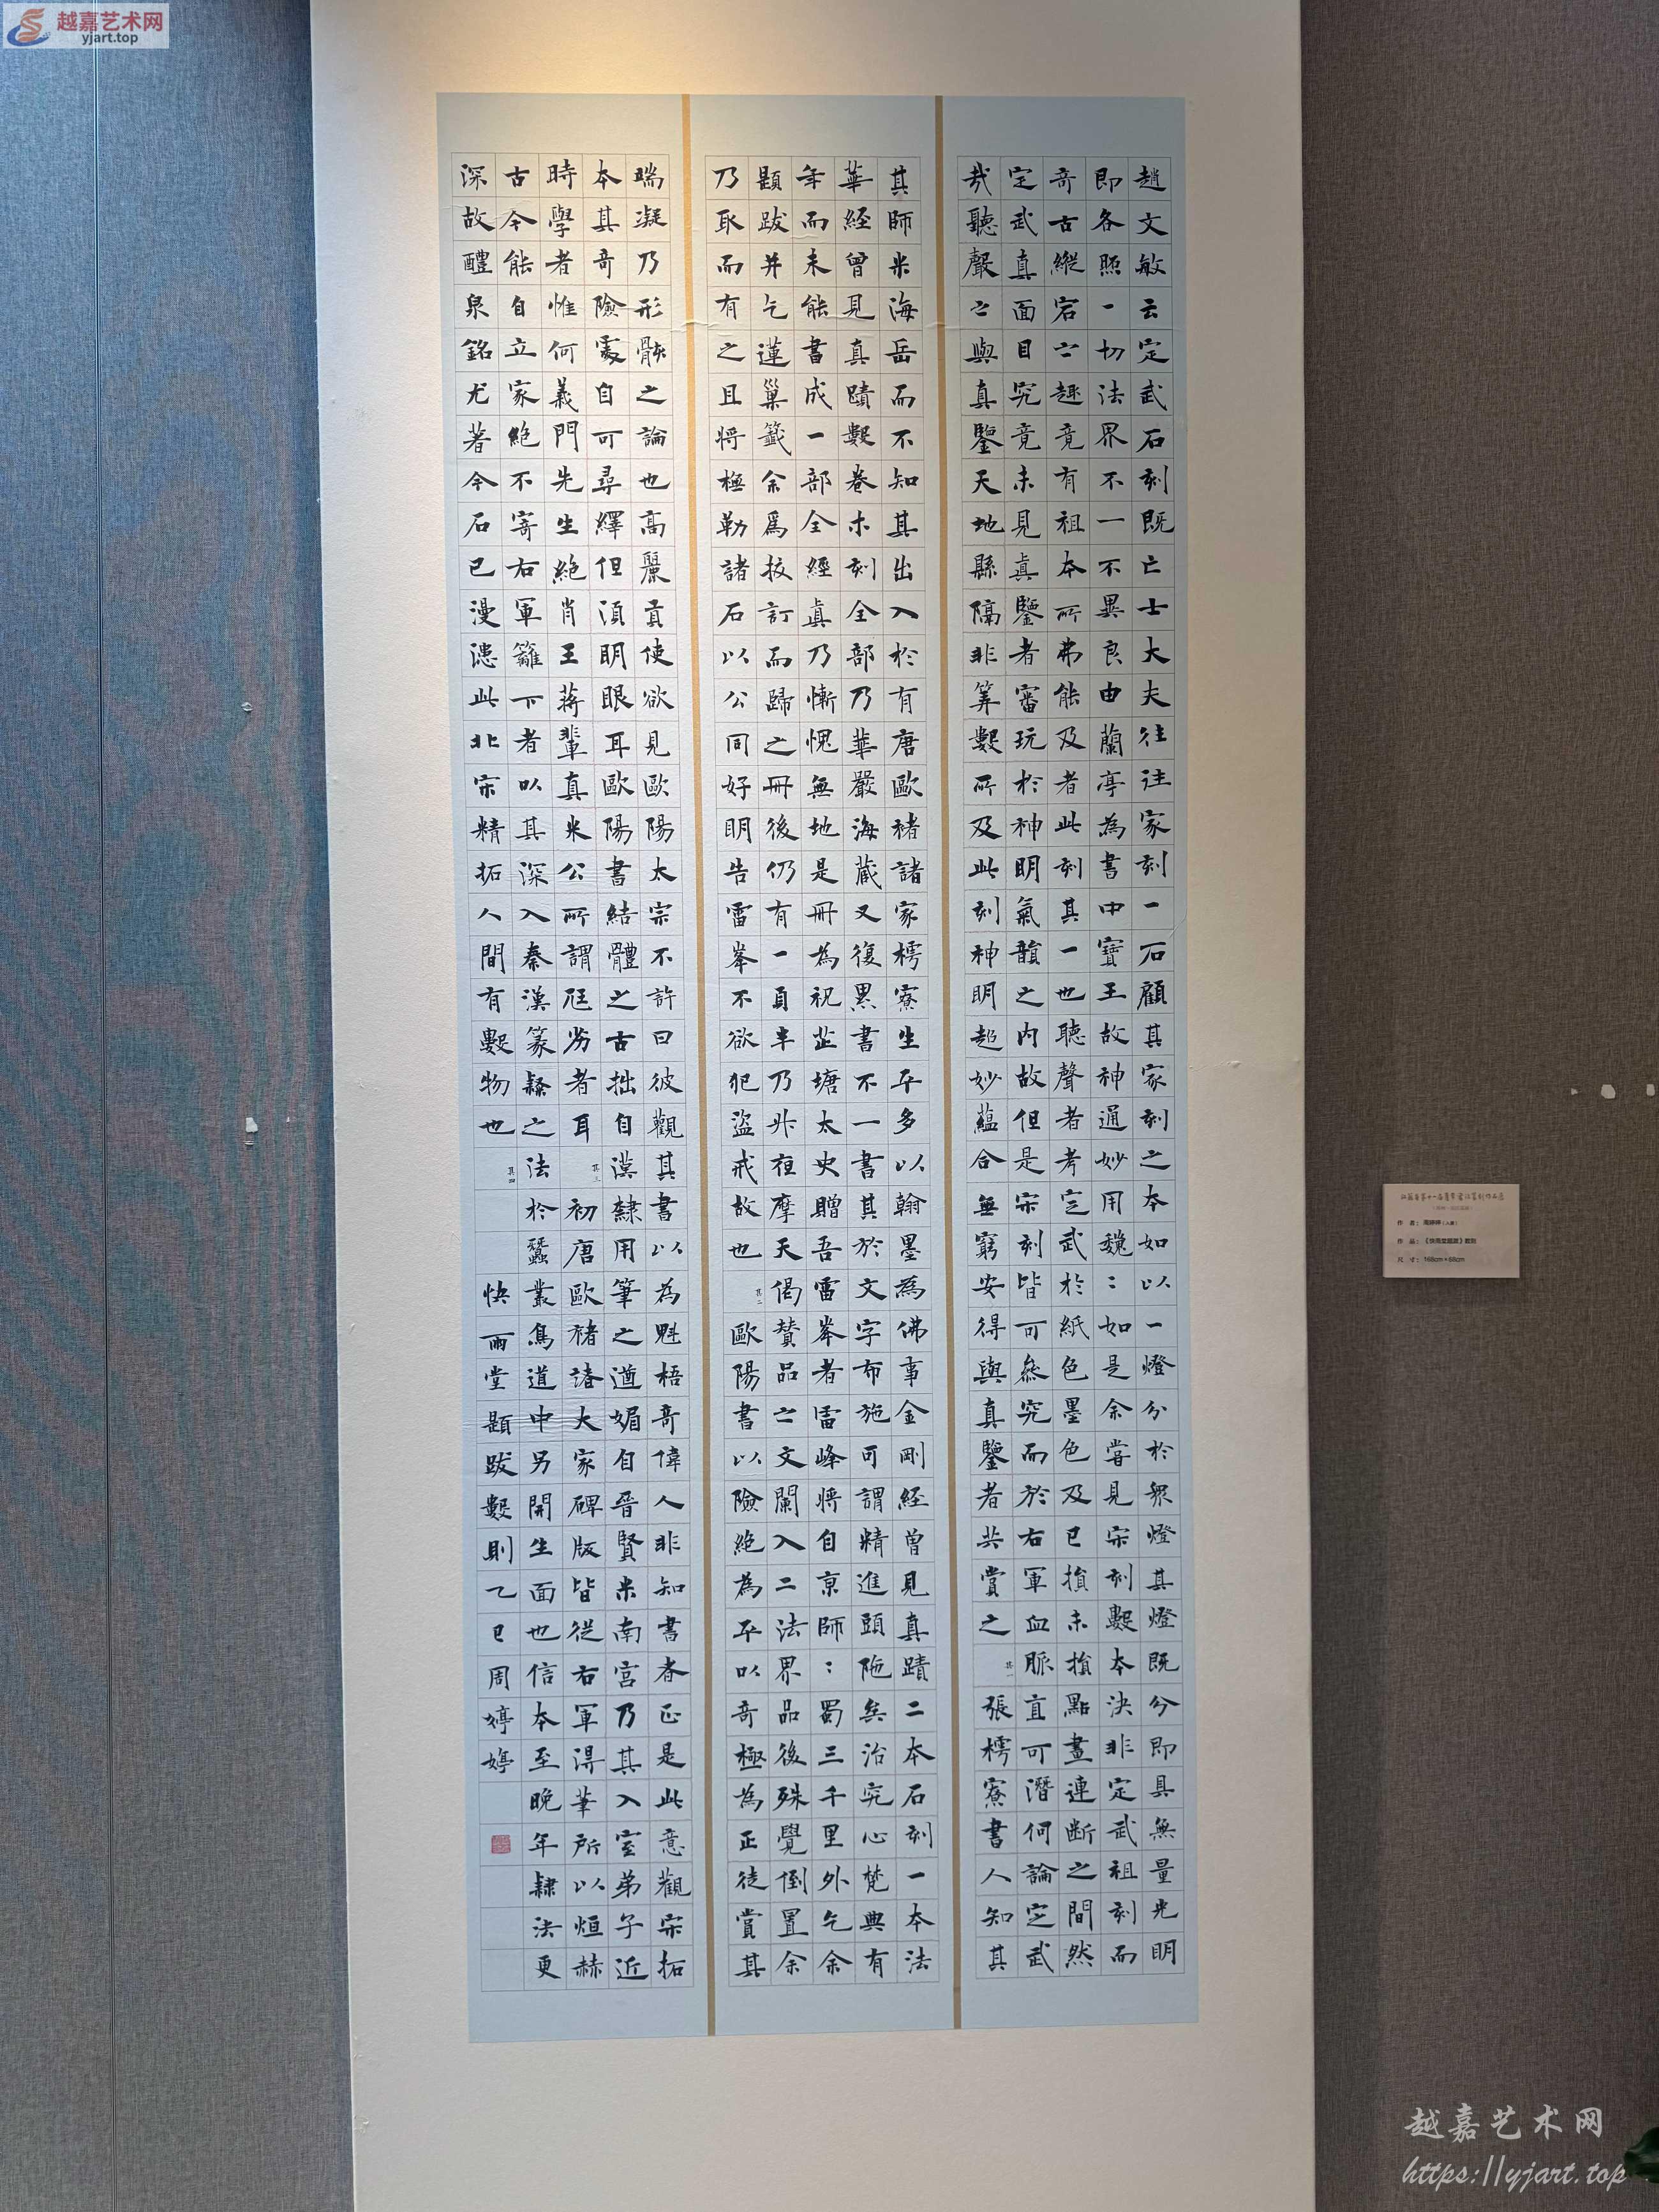 越嘉艺术网
yjart.top
趙文敏云定武石刻既亡士大夫往往家刻一石顧其家刻之本如以一燈分於衆燈其燈既分即具無量光明
即各照一切法界不一不異良由蘭亭為書中寶王故神通妙用巍：如是余嘗見宋刻數本決非定武祖刻而
奇古縱宕之趣竟有祖本所弗能及者此刻其一也聽聲者考定武於紙色墨色及已損未損點畫連斷之間然
定武真面目究竟未見真鑒者審玩於神明氣韻之內故但是宋刻皆可叅究而於右軍血脈直可潛何論定武
哉聽聲之與真鑒天地縣隔非筭數所及此刻神明超妙蘊合無窮安得與真鑒者共賞之 其一 張樗寮書人知其
其師米海岳而不知其出入於有唐歐褚諸家樗寮生平多以翰墨為佛事金剛經曾見真蹟二本石刻一本法
華經曾見真蹟數卷木刻全部乃華嚴海藏又復累書不一書其於文字布施可謂精進頭陁矣治究心梵典有
年而未能書成一部全經真乃慚愧無地是冊為祝芷塘太史贈吾雷峯者雷峰將自京師：蜀三千里外乞余
題跋并乞蓮巢籤余爲挍訂而歸之冊後仍有一頁半乃升夜摩天偈贊品之文闌入二法界品後殊覺倒置余
乃取而有之且將極勒諸石以公同好明告雷峯不欲犯盜戒故也 其二 歐陽書以險絕為平以奇極為正徒賞其
端凝乃形骸之論也高麗貢使欲見歐陽太宗不許曰彼觀其書以為魁梧奇偉人非知書者正是此意觀宋拓
本其奇險處自可尋繹但須明眼耳歐陽書結體之古拙自漢隸用筆之遒媚自晉賢米南宮乃其入室弟子近
時學者惟何義門先生絕肖王蔣輩真米公所謂尫劣者耳 其三 初唐歐褚諸大家碑版皆從右軍得筆所以烜赫
古今能自立家絕不寄右軍籬下者以其深入秦漢篆繇之法於蠶叢鳥道中另開生面也信本至晚年隸法更
深故醴泉銘尤著今石已漫漶此北宋精拓人間有數物也 其四 快雨堂題跋數則乙巳周婷婷
江苏省第十一届青年书法篆刻作品展
作 者：周婷婷（入展）
作 品：《快雨堂题跋》数则
尺 寸：168cm×68cm
越嘉艺术网
https://yjart.top